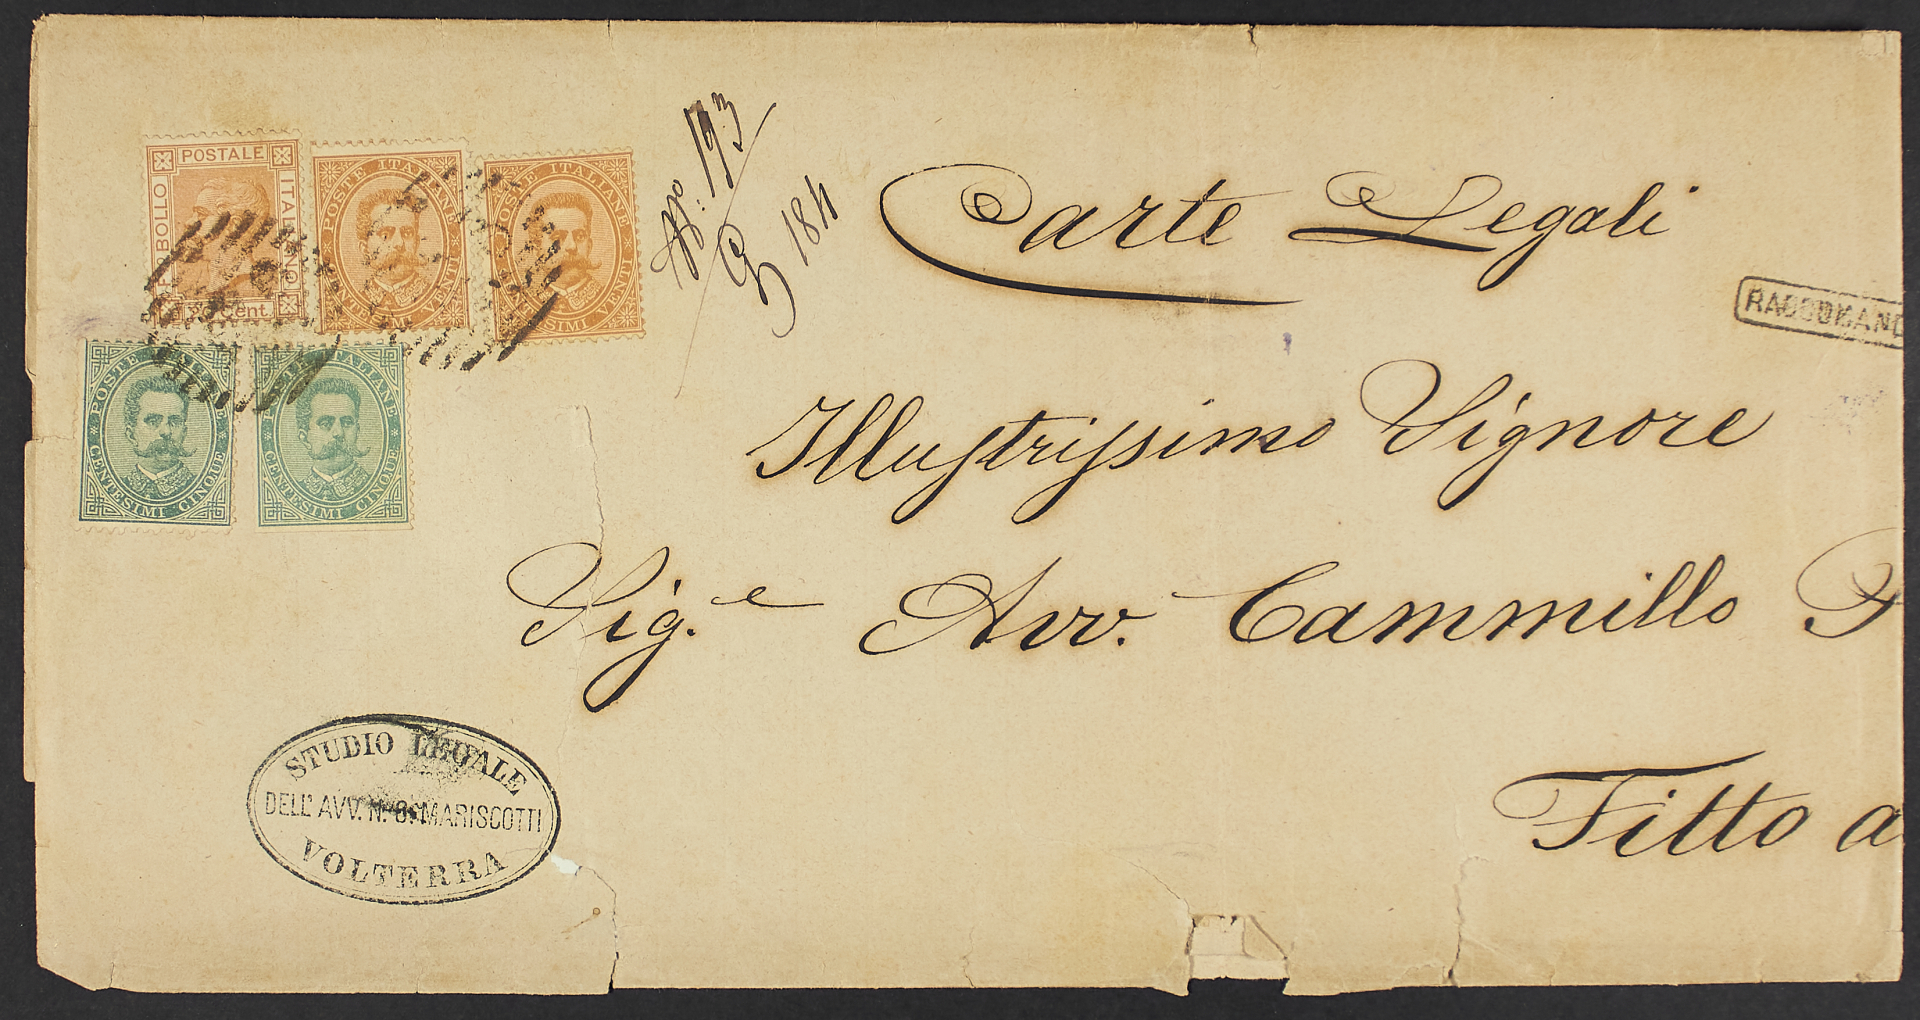 FRANCOBOLLO POSTALE ITALIANO
20 Cent.
POSTE ITALIANE
CENTESIMI VENTI
POSTE ITALIANE
CENTESIMI VENTI
POSTE ITALIANE
CENTESIMI CINQUE
POSTE ITALIANE
CENTESIMI CINQUE
No: 193
Carte Legali
RACCOMAND
Illustrissimo Signore
Sig.e Avv. Cammillo F
Fitto a
STUDIO LEGALE
DELL' AVV. N. O. MARISCOTTI
VOLTERRA